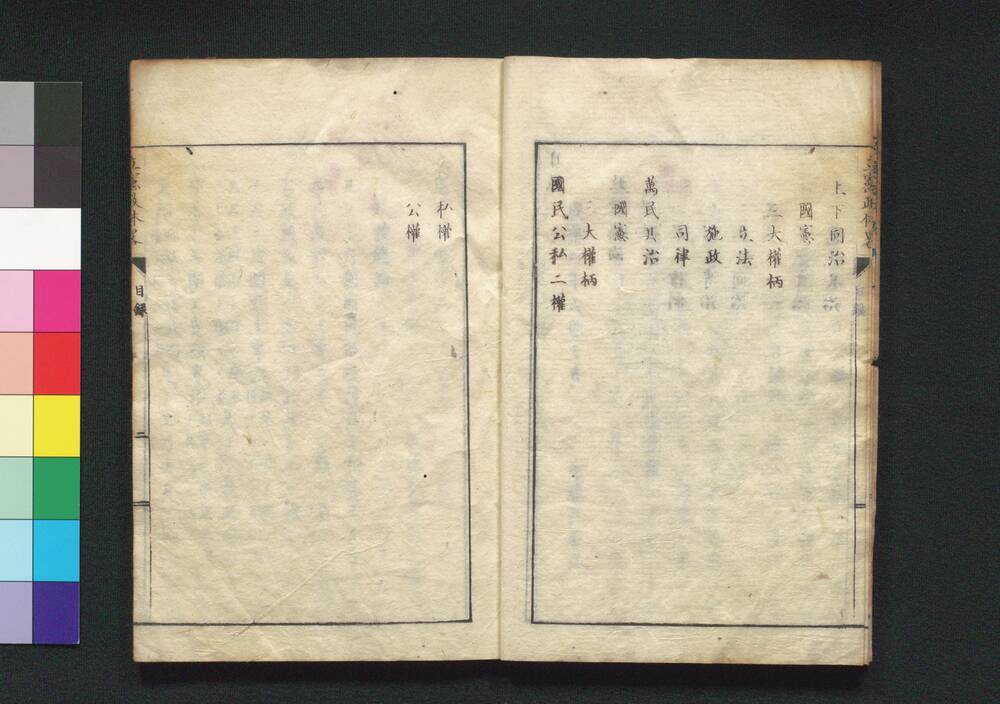 上下同治
國憲
三大權柄
立法
施政
司律
萬民共治
國憲
三大權柄
國民公私二權
私權
公權
目録
二